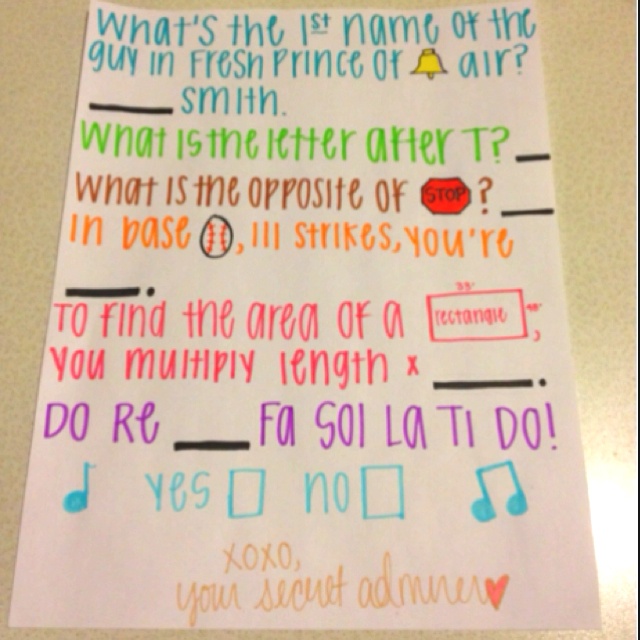 What's the 1st name of the
guy in Fresh Prince of air?
____ Smith.
What is the letter after T? __
What is the opposite of STOP? ___
In base , III strikes, you're
____.
To find the area of a rectangle,
you multiply length x ____.
DO Re ____ Fa Sol La Ti DO!
yes no
xoxo,
your secret admirer